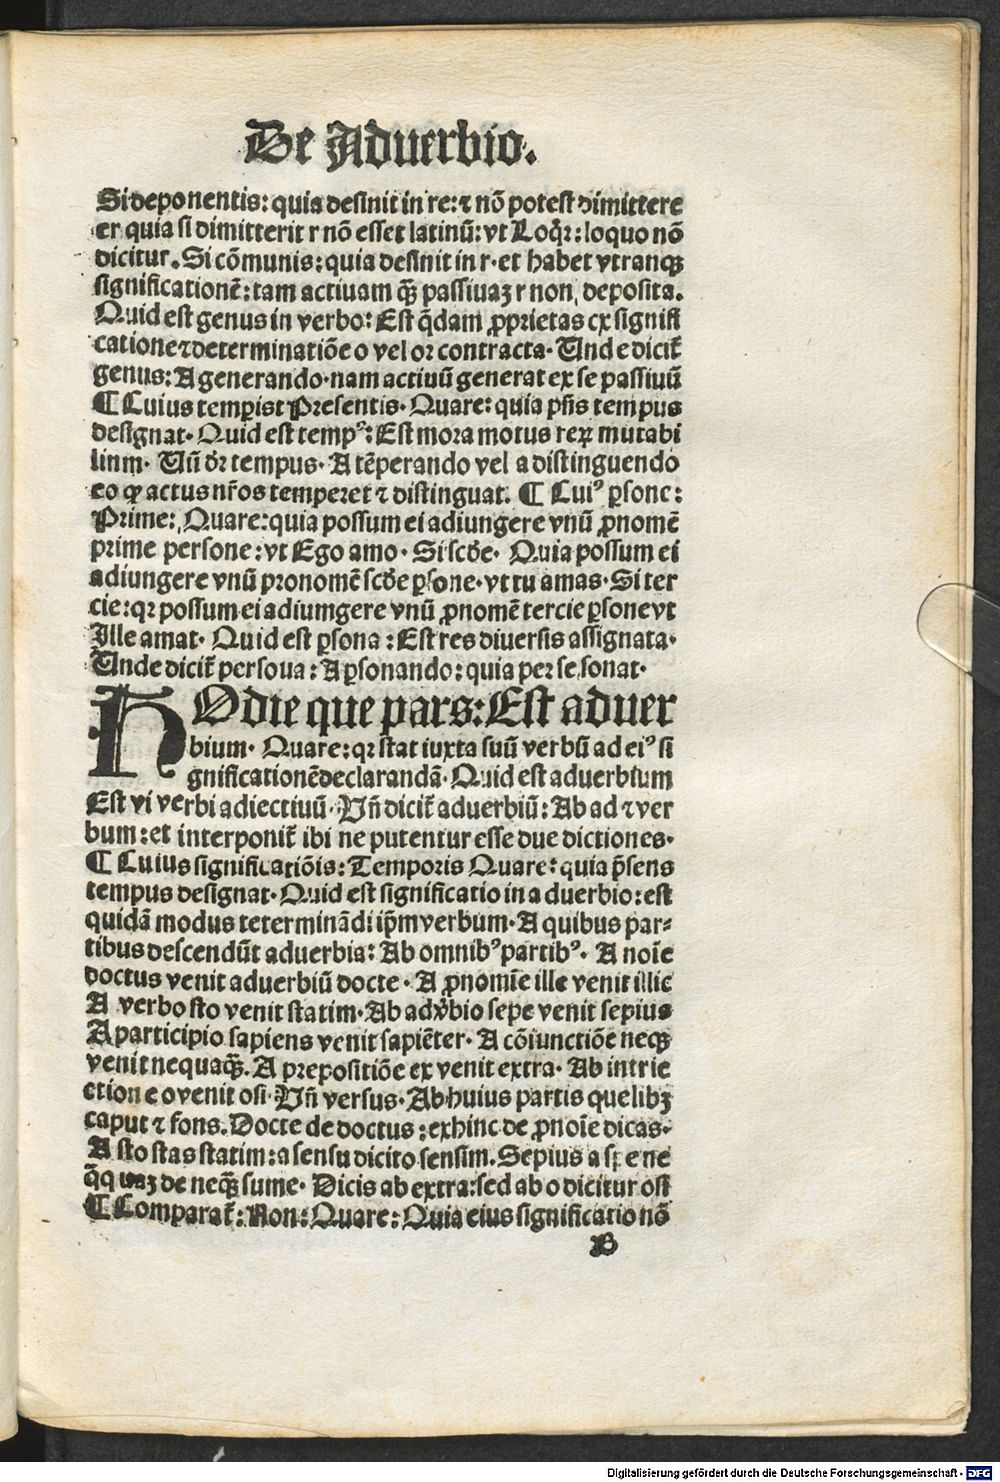 De Aduerbio.
Si deponentis: quia desinit in re: ⁊ nō potest dimittere
er quia si dimitterit r nō esset latinū: vt Loqr̄: loquo nō
dicitur. Si cōmunis: quia desinit in r· et habet vtranqꝫ
significationē: tam actiuam qꝫ̄ passiuaꝫ r non deposita.
Quid est genus in verbo: Est q̄dam ꝓprietas ex signifi
catione ⁊ determinatiōe o vel or contracta· Vnde dicit̄
genus: A generando· nam actiuū generat ex se passiuū
¶ Cuius temꝑis: Presentis· Quare: quia p̄ns tempus
designat· Quid est tempꝰ: Est mora motus reꝝ mutabi
linm· Vn̄ dr̄ tempus· A tēperando vel a distinguendo
eo ꝙ actus nr̄os temperet ⁊ distinguat. ¶ Cuiꝰ ꝑsone:
Prime: Quare: quia possum ei adiungere vnū ꝓnomē
prime persone: vt Ego amo· Si scd̄e· Quia possum ei
adiungere vnū pronomē scd̄e ꝑsone· vt tu amas· Si ter
cie: qꝛ possum ei adiumgere vnū ꝓnomē tercie ꝑsone vt
Ille amat· Quid est ꝑsona: Est res diuersis assignata·
Vnde dicit̄ persoua: A ꝑsonando: quia per se sonat·
HOdie que pars: Est aduer
bium· Quare: qꝛ stat iuxta suū verbū ad eiꝰ si
gnificationē declarandā· Quid est aduerbium
Est vi verbi adiectiuū· Vn̄ dicit̄ aduerbiū: Ab ad ⁊ ver
bum: et interponit̄ ibi ne putentur esse due dictiones·
¶ Cuius significatiōis: Temporis Quare: quia p̄sens
tempus designat· Quid est significatio in aduerbio: est
quidā modus teterminādi ip̄m verbum· A quibus par⸗
tibus descendūt aduerbia: Ab omnibꝰ partibꝰ· A noīe
doctus venit aduerbiū docte· A ꝓnomīe ille venit illic
A verbo sto venit statim· Ab adv̄bio sepe venit sepius
A participio sapiens venit sapiēter· A cōiunctiōe neqꝫ
venit nequaqꝫ̄. A prepositiōe ex venit extra· Ab intrie
ctione o venit osi· Vn̄ versus· Ab huius partis quelibꝫ
caput ⁊ fons. Docte de doctus: exhinc de ꝓnoīe dicas·
A sto stas statim: a sensu dicito sensim. Sepius a sepe ne
q̄quaꝫ de neqꝫ sume· Dicis ab extra: sed ab o dicitur osi
¶ Comparat̄: Non: Quare: Quia eius significatio nō
B
Digitalisierung gefördert durch die Deutsche Forschungsgemeinschaft - DFG